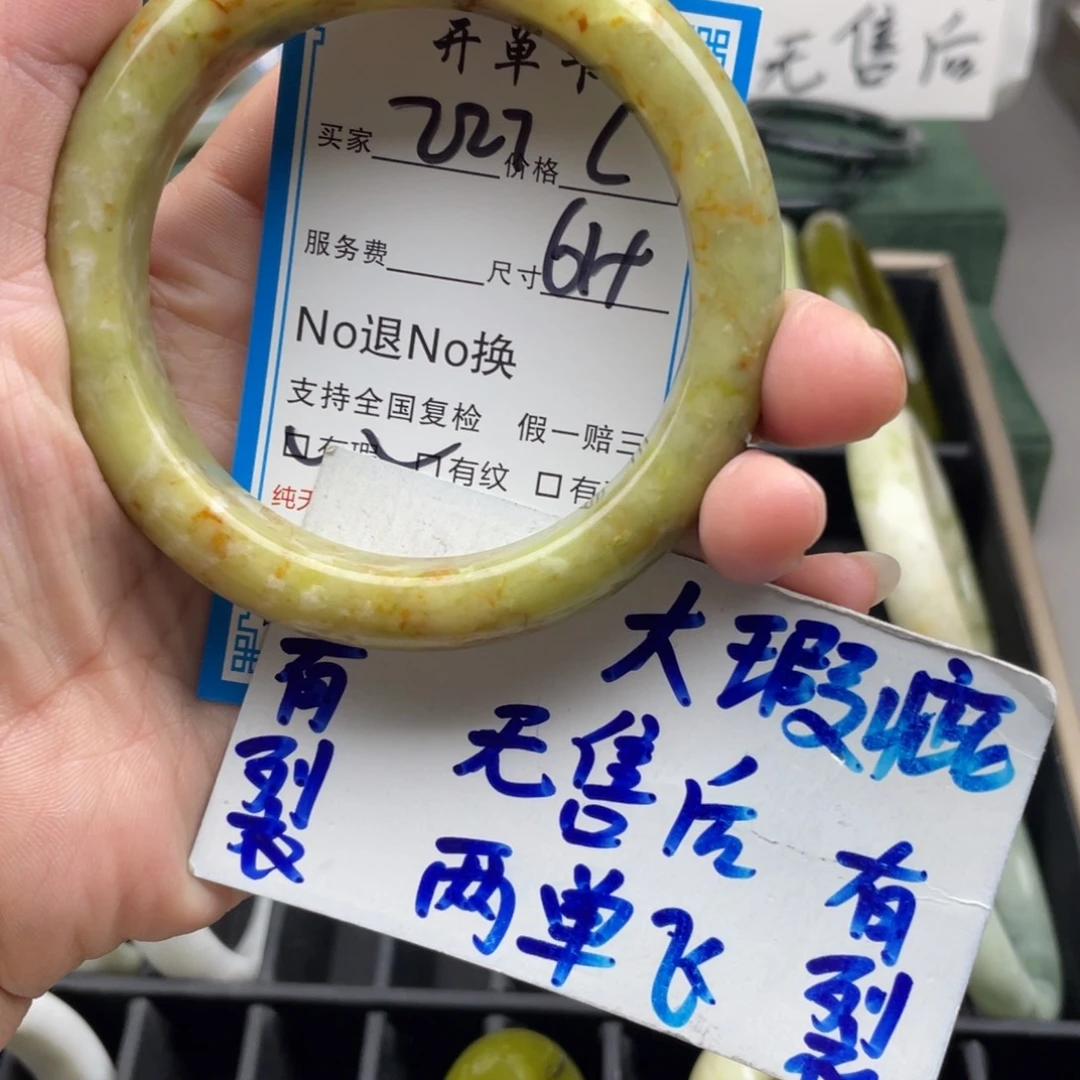 开单卡
无售后
买家 727 价格
服务费 尺寸 61
No退No换
支持全国复检 假一赔三
有瑕 有纹 有
纯天
大瑕疵
无售后
两单飞
有裂
有裂